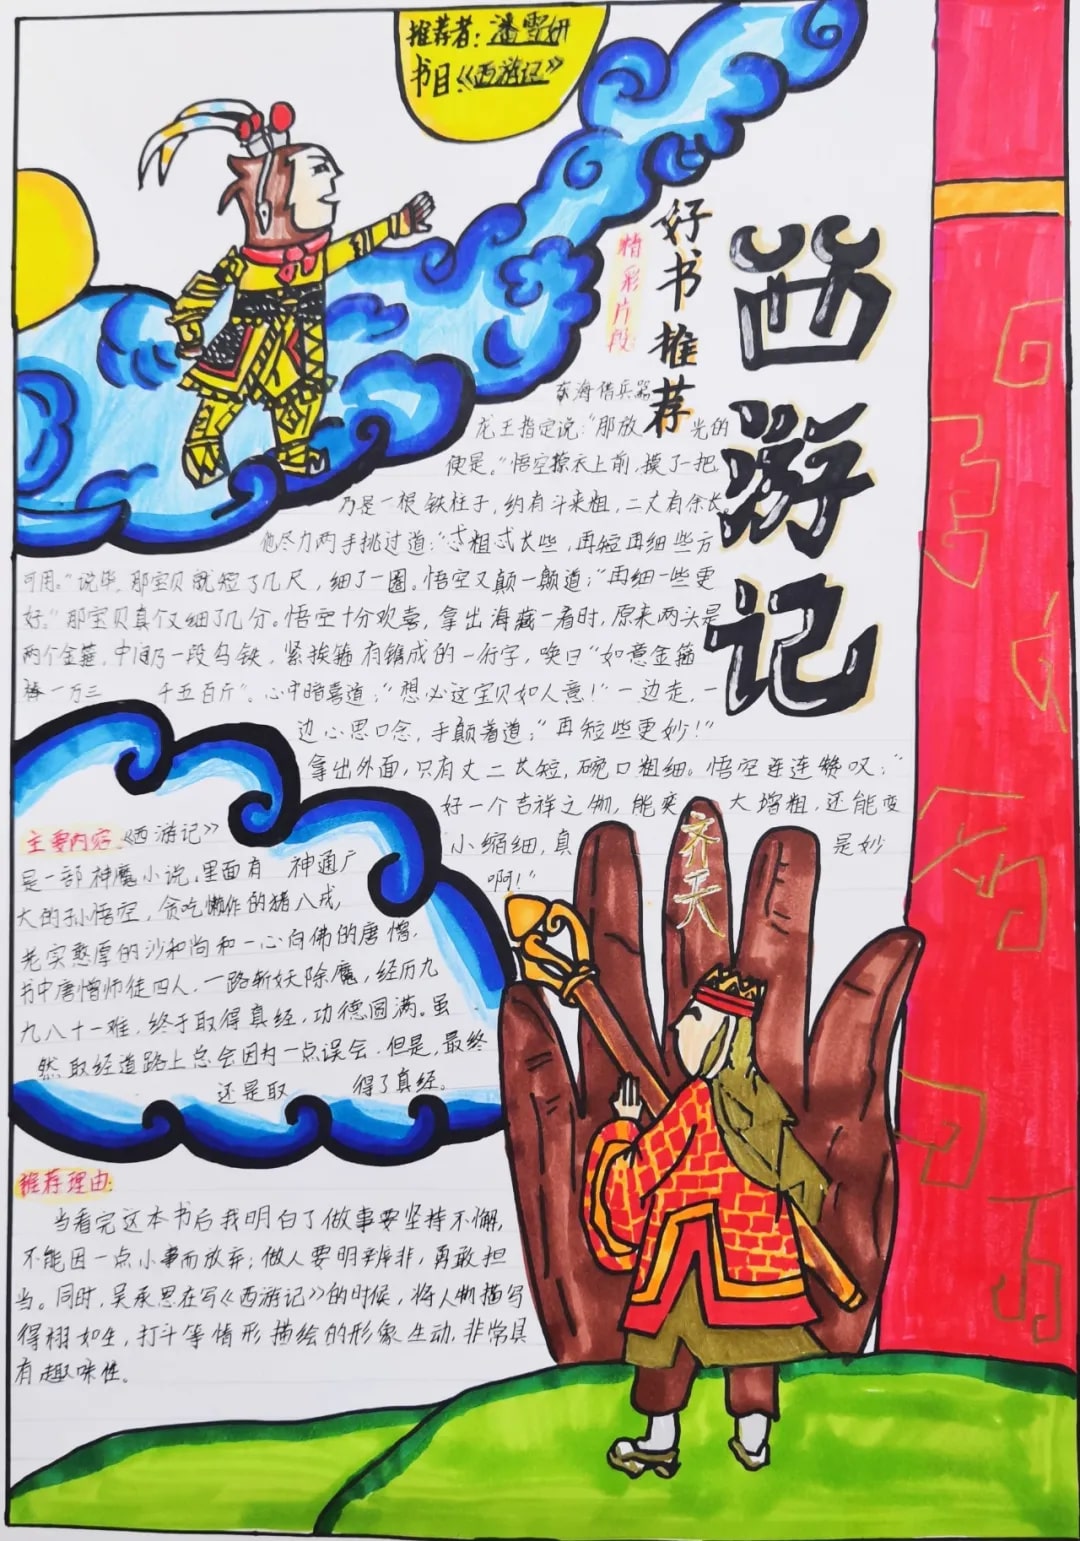 推荐者：潘雪妍
书目：《西游记》
西游记
好书推荐
精彩片段：
东海借兵器
龙王指定说：“那放光的
便是。”悟空撩衣上前，摸了一把，
乃是一根铁柱子，约有斗来粗，二丈有余长。
他尽力两手挝过道：“忒粗忒长些，再短再细些方
可用。”说毕，那宝贝就短了几尺，细了一圈。悟空又颠一颠道：“再细一些更
好。”那宝贝真个又细了几分。悟空十分欢喜，拿出海藏一看时，原来两头是
两个金箍，中间乃一段乌铁，紧挨箍有镌成的一行字，唤曰“如意金箍
棒一万三千五百斤”。心中暗喜道：“想必这宝贝如人意！”一边走，一
边心思口念，手颠着道：“再短些更妙！”
拿出外面，只有丈二长短，碗口粗细。悟空连连赞叹：“
好一个吉祥之物，能变大增粗，还能变
小缩细，真是妙
啊！”
主要内容：《西游记》
是一部神魔小说，里面有神通广
大的孙悟空，贪吃懒作的猪八戒，
老实憨厚的沙和尚和一心向佛的唐僧。
书中唐僧师徒四人，一路斩妖除魔，经历九
九八十一难，终于取得真经，功德圆满。虽
然取经道路上总会因为一点误会，但是，最终
还是取得了真经。
推荐理由：
当看完这本书后我明白了做事要坚持不懈，
不能因一点小事而放弃；做人要明辨是非，勇敢担
当。同时，吴承恩在写《西游记》的时候，将人物描写
得栩如生，打斗等情形描绘的形象生动，非常具
有趣味性。
齐天